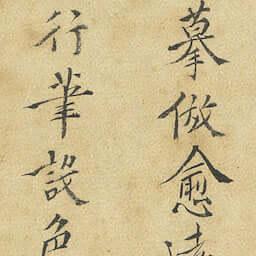 摹倣愈遠
行筆設色